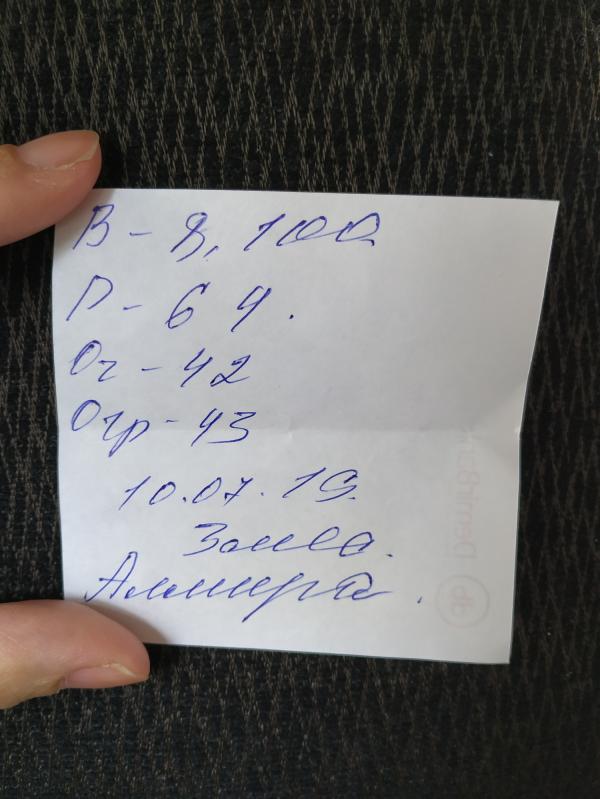 В - 8, 100
Р - 64.
Ог - 42
Огр - 43
10.07.19.
Амира